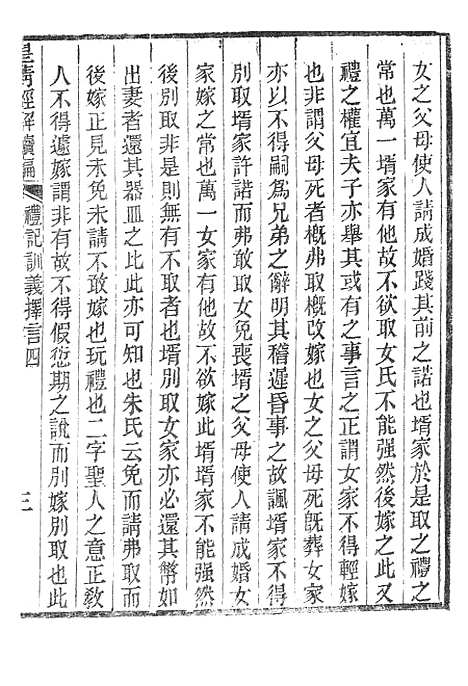 女之父母使人請成婚踐其前之諾也壻家於是取之禮之
常也萬一壻家有他故不欲取女氏不能强然後嫁之此又
禮之權宜夫子亦舉其或有之事言之正謂女家不得輕嫁
也非謂父母死者槪弗取槪改嫁也女之父母死旣葬女家
亦以不得嗣爲兄弟之辭明其稽遲昏事之故諷壻家不得
別取壻家許諾而弗敢取女免喪壻之父母使人請成婚女
家嫁之常也萬一女家有他故不欲嫁此壻壻家不能强然
後別取非是則無有不取者也壻別取女家亦必還其幣如
出妻者還其器皿之比此亦可知也朱氏云免而請弗取而
後嫁正見未免未請不敢嫁也玩禮也二字聖人之意正敎
人不得遠嫁謂非有故不得假愆期之說而別嫁別取也此
皇淸經解續編
禮記訓義擇言四
三